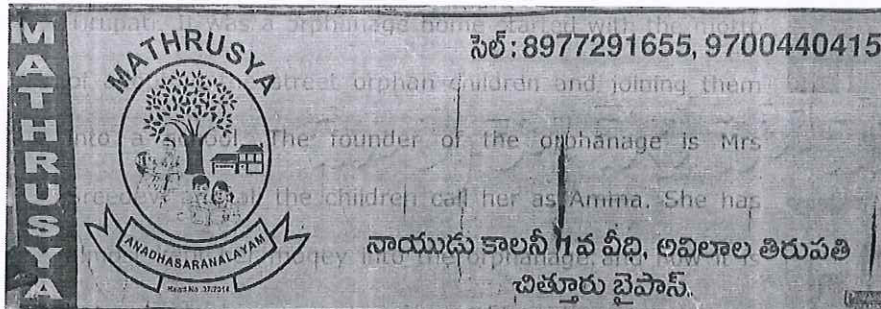 MATHRUSYA
MATHRUSYA
ANADHASARANALAYAM
సెల్ : 8977291655, 9700440415
నాయుడు కాలనీ 1వ వీధి, అవిలాల తిరుపతి
చిత్తూరు బైపాస్.
was a orphanage home started with the
of street orphan children and joining them
into a The founder of the orphanage is Mrs
the children call her as Amma. She has
into the orphanage